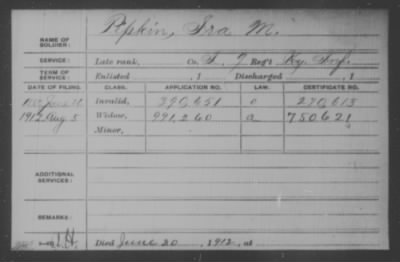 NAME OF SOLDIER: Pipkin, Ira M.
SERVICE: Late rank, Co. I, 7 Reg't Ky. Inf.
TERM OF SERVICE: Enlisted , 1 Discharged , 1
DATE OF FILING. CLASS. APPLICATION NO. LAW. CERTIFICATE NO.
Invalid, 390,651 270,613
1912 Aug 5 Widow, 991,260 a 750621
Minor,
ADDITIONAL SERVICES:
REMARKS:
Died June 20, 1912, at